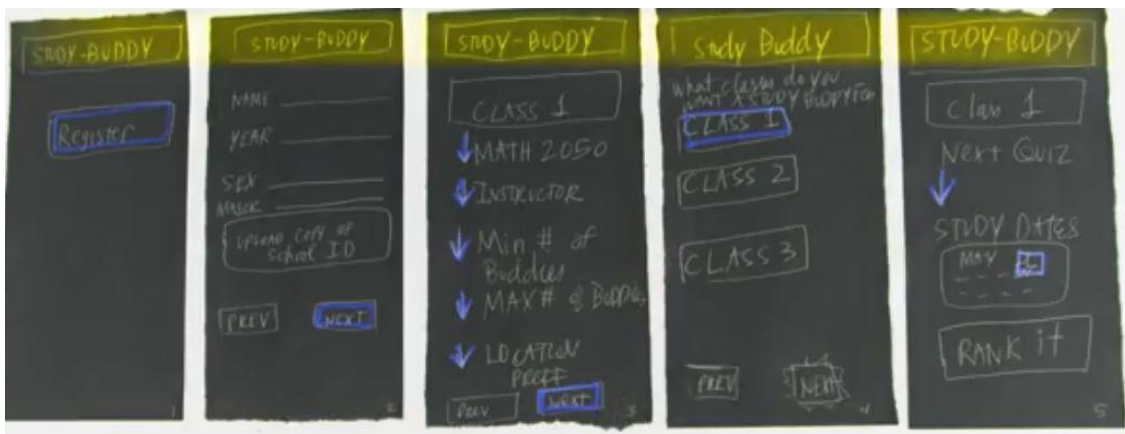 STUDY-BUDDY
Register
1
STUDY-BUDDY
NAME
YEAR
SEX
MAJOR
UPLOAD COPY OF
School ID
PREV NEXT
2
STUDY-BUDDY
CLASS 1
MATH 2050
INSTRUCTOR
Min # of
Buddies
MAX # of Buddies
LOCATION
PREF
PREV NEXT
3
Study Buddy
What classes do you
WANT A STUDY BUDDY FOR
CLASS 1
CLASS 2
CLASS 3
PREV NEXT
4
STUDY-BUDDY
Class 1
Next Quiz
STUDY DATES
MAY
RANK it
5